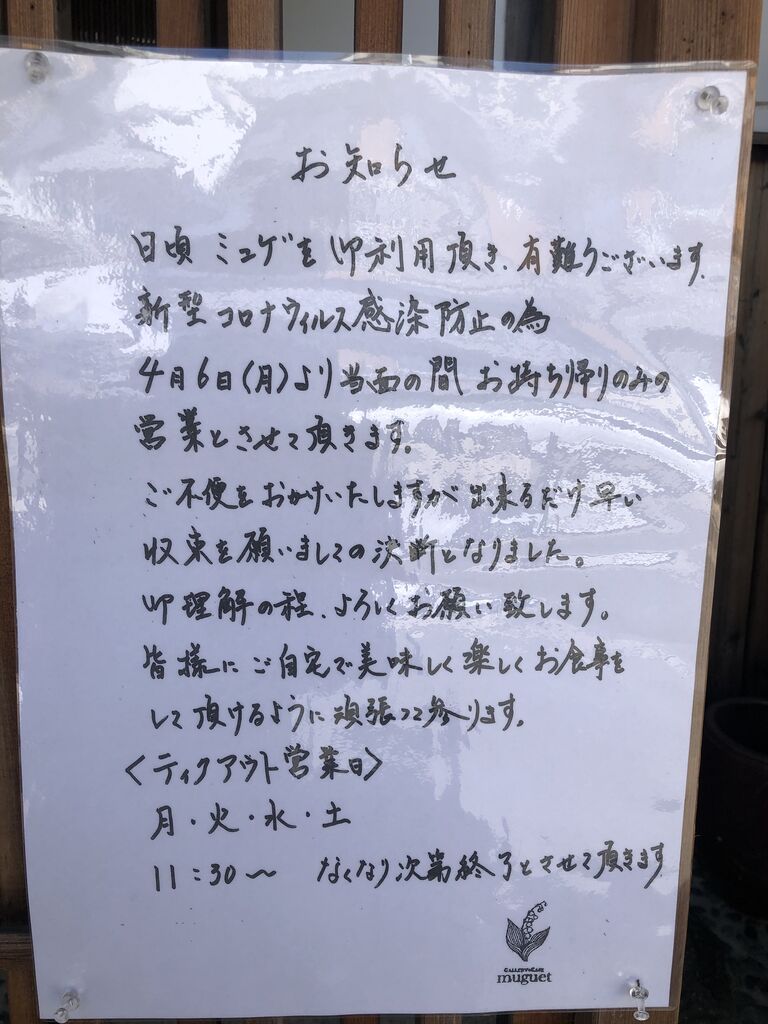 お知らせ
日頃 ミュゲを 御利用頂き、有難うございます。
新型コロナウィルス感染防止の為
4月6日(月)より当面の間 お持ち帰りのみの
営業とさせて頂きます。
ご不便をおかけいたしますが 出来るだけ早い
収束を願いましての決断となりました。
御理解の程、よろしくお願い致します。
皆様にご自宅で美味しく楽しくお食事を
して頂けるように頑張って参ります。
〈ティクアウト営業日〉
月・火・水・土
11:30〜 なくなり次第終了とさせて頂きます
GALLERY&CAFE
muguet